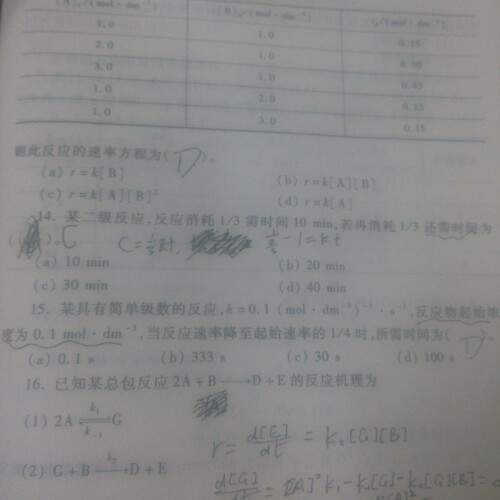 [A]₀/(mol·dm⁻³) [B]₀/(mol·dm⁻³) r₀/(mol·dm⁻³)
1.0 1.0 0.15
2.0 1.0 0.30
3.0 1.0 0.45
1.0 2.0 0.15
1.0 3.0 0.15
则此反应的速率方程为( D )。
(a) r=k[B] (b) r=k[A][B]
(c) r=k[A][B]² (d) r=k[A]
14. 某二级反应,反应消耗 1/3 需时间 10 min,若再消耗 1/3 还需时间为
( )。C
(a) 10 min (b) 20 min
(c) 30 min (d) 40 min
15. 某具有简单级数的反应, k=0.1 (mol·dm⁻³)⁻¹·s⁻¹,反应物起始浓
度为 0.1 mol·dm⁻³,当反应速率降至起始速率的 1/4 时,所需时间为( D )。
(a) 0.1 s (b) 333 s (c) 30 s (d) 100 s
16. 已知某总包反应 2A+B⟶D+E 的反应机理为
(1) 2A ⇌ G k₁ k₋₁
r= d[E]/dt = k₂[G][B]
(2) G+B ⟶ D+E k₂
d[G]/dt = [A]²k₁-k₋₁[G]-k₂[G][B]=